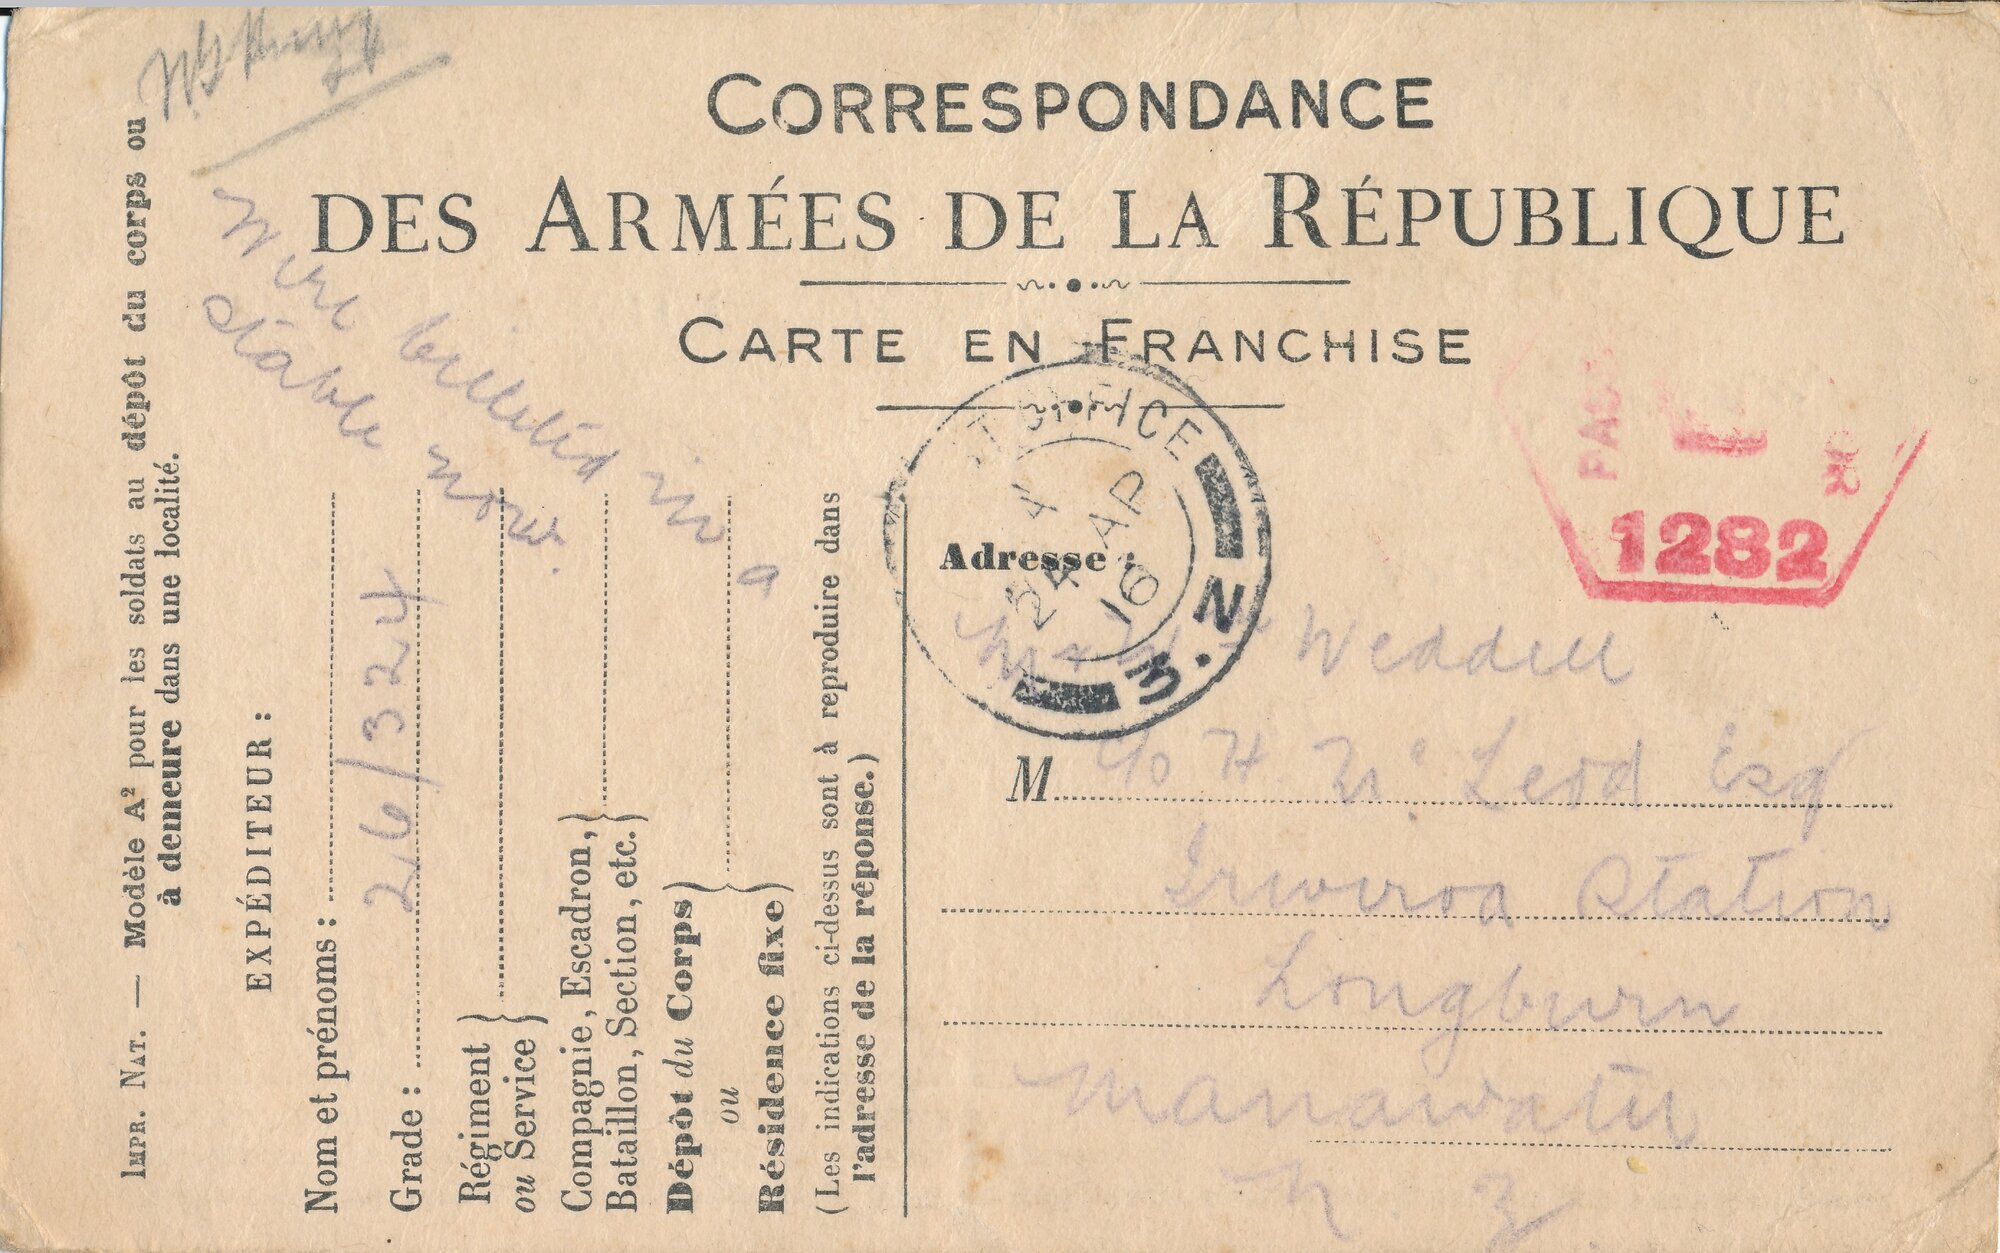 CORRESPONDANCE
DES ARMÉES DE LA RÉPUBLIQUE
CARTE EN FRANCHISE
IMPR. NAT. — Modèle A² pour les soldats au dépôt du corps ou
à demeure dans une localité.
EXPÉDITEUR :
Nom et prénoms :
26/324
Grade :
Régiment
ou Service
Compagnie, Escadron,
Bataillon, Section, etc.
Dépôt du Corps
ou
Résidence fixe
(Les indications ci-dessus sont à reproduire dans
l'adresse de la réponse.)
Were billeted in a
stable now.
OFFICE
X
24 AP
16
N.Z.
PAS OR
1282
Adresse :
Weddell
M c/o H. McLeod Esq
Station
Longburn
Manawatu
N. Z.